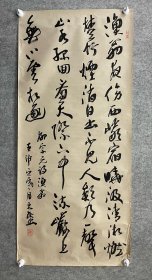 漁翁夜傍西巖宿曉汲清湘燃
楚竹煙消日出不見人欸乃一聲
山水綠回看天際下中流巖上
無心雲相逐
柳宗元詩漁翁
壬申